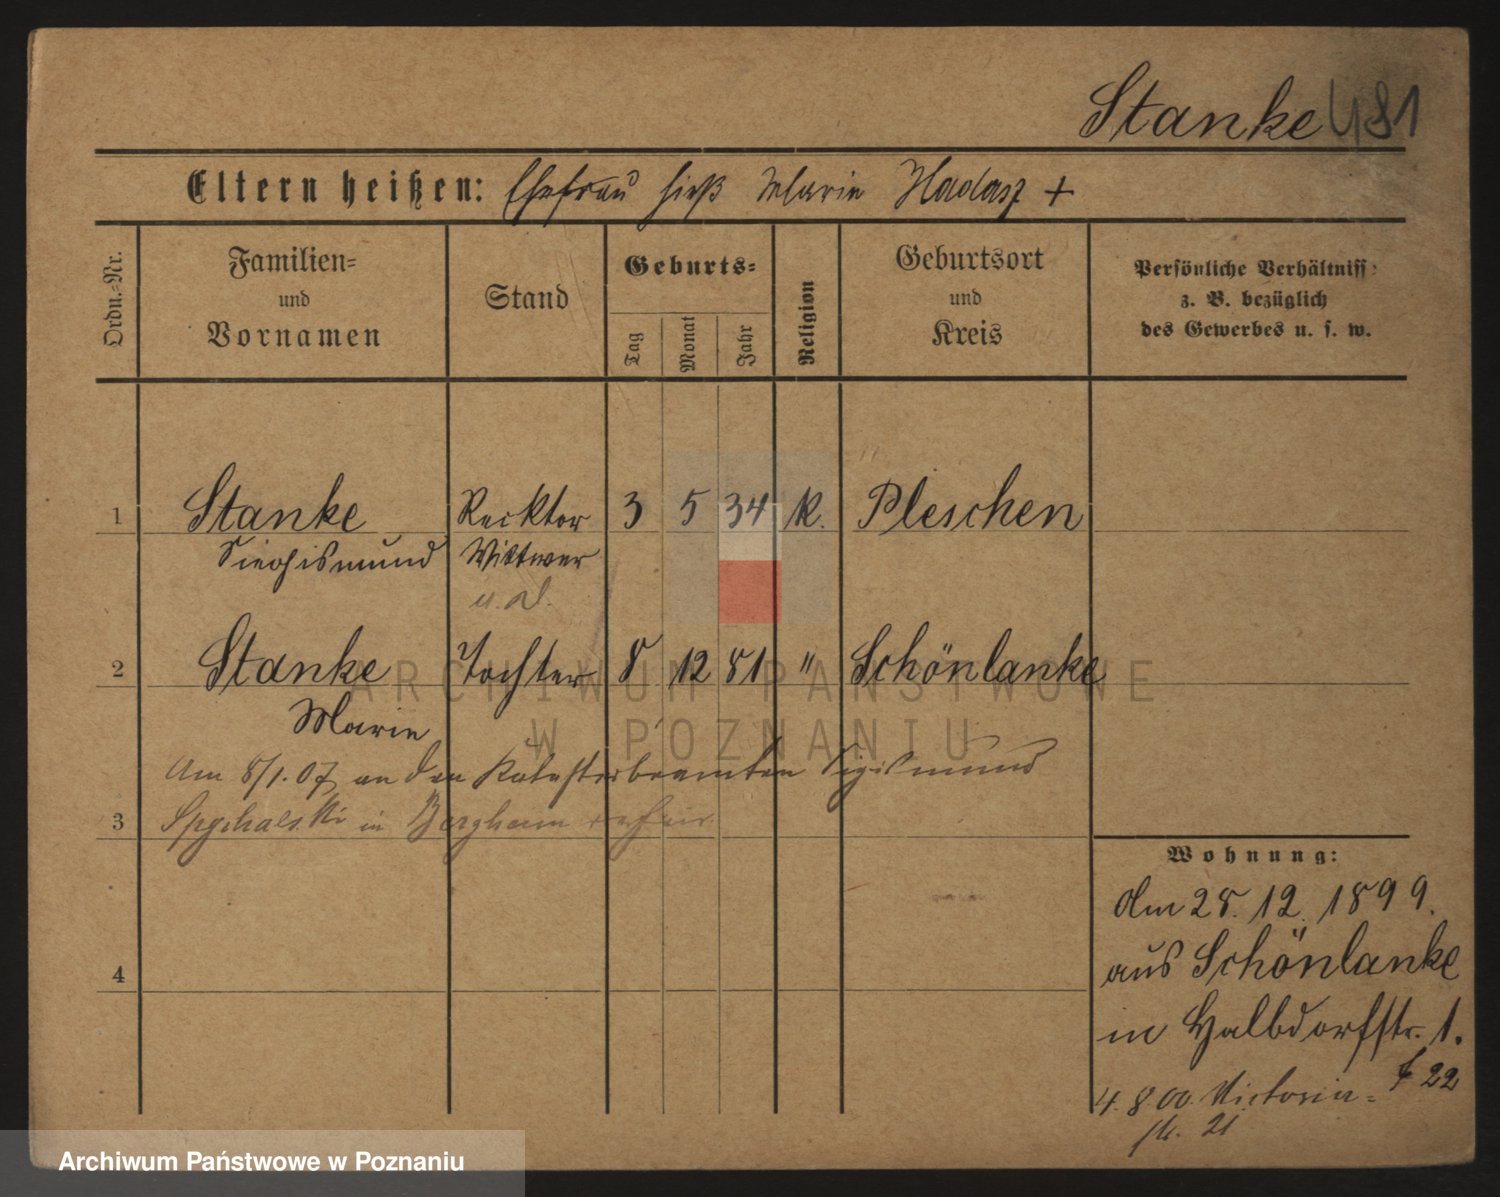 Stanke 481
Eltern heißen: Ehefrau hieß Marie Hadasz +
Ordn.=Nr.
Familien=
und
Vornamen
Stand
Geburts=
Tag
Monat
Jahr
Religion
Geburtsort
und
Kreis
Persönliche Verhältniss:
z. B. bezüglich
des Gewerbes u. s. w.
1 Stanke Recktor 3 5 34 k. Pleschen
Siegismund Wittwer
u. d.
2 Stanke Tochter 8 12 81 " Schönlanke
Marie
Am 8/1.07 an den Katasterbeamten Sigismund
3 Spychalski in
4
Wohnung:
Am 28. 12. 1899.
aus Schönlanke
in Halbdorfstr. 1.
F 22
4. 8 00. Victoria=
str. 21
ARCHIWUM PAŃSTWOWE
W POZNANIU
Archiwum Państwowe w Poznaniu